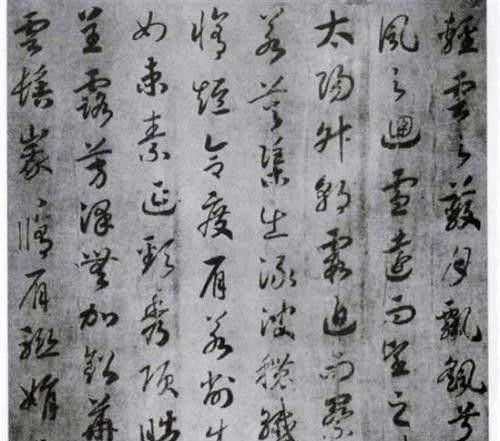 輕雲之蔽月飄飖兮
風之迴雪遠而望之
太陽升朝霞迫而察
若芙蕖出淥波穠纖
脩短合度肩若削成
如束素延頸秀項皓
呈露芳澤無加鉛華
雲髻峩〻脩眉聯娟